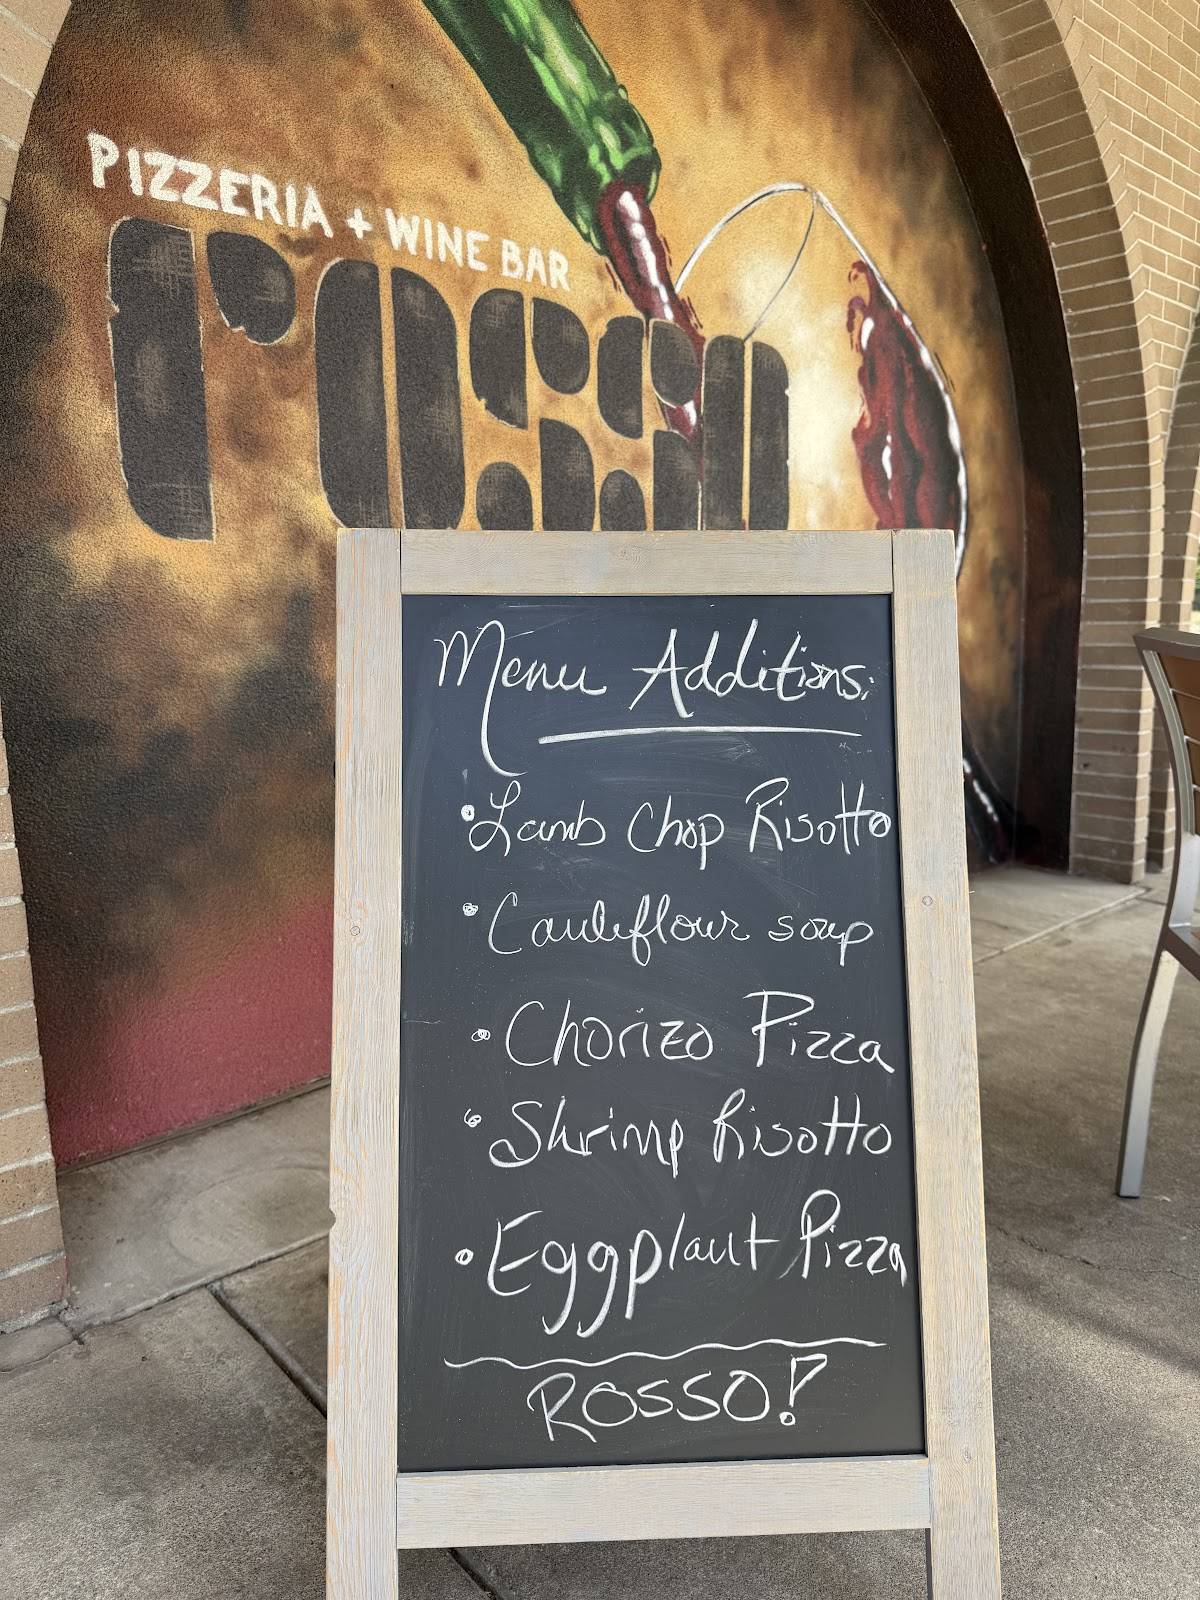 PIZZERIA + WINE BAR
rosso
Menu Additions:
• Lamb Chop Risotto
• Cauliflour soup
• Chorizo Pizza
• Shrimp Risotto
• Eggplant Pizza
ROSSO!